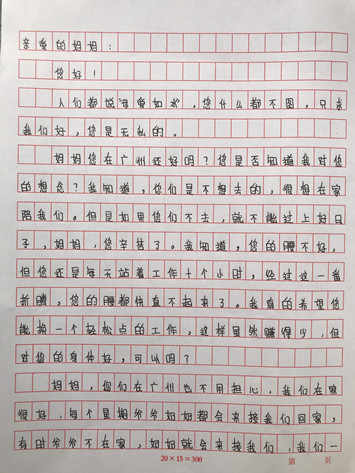 亲爱的妈妈：
您好！
人们都说母爱如水，您什么都不图，只为
我们好，您是无私的。
妈妈您在广州还好吗？您是否知道我对您
的想念？我知道，你们是不想去的，很想在家
陪我们。但是如果你们不去，就不能过上好日
子，妈妈，您辛苦了。我知道，您的腰不好，
但您还是每天站着工作十个小时，经过这一番
折腾，您的腰都快直不起来了。我真的希望您
能换一个轻松点的工作，这样虽然赚得少，但
对您的身体好，可以吗？
妈妈，你们在广州也不用担心，我们在家
很好，每个星期爷爷奶奶都会来接我们回家，
有时爷爷不在家，奶奶就会来接我们，我们一
20×15=300
第 页